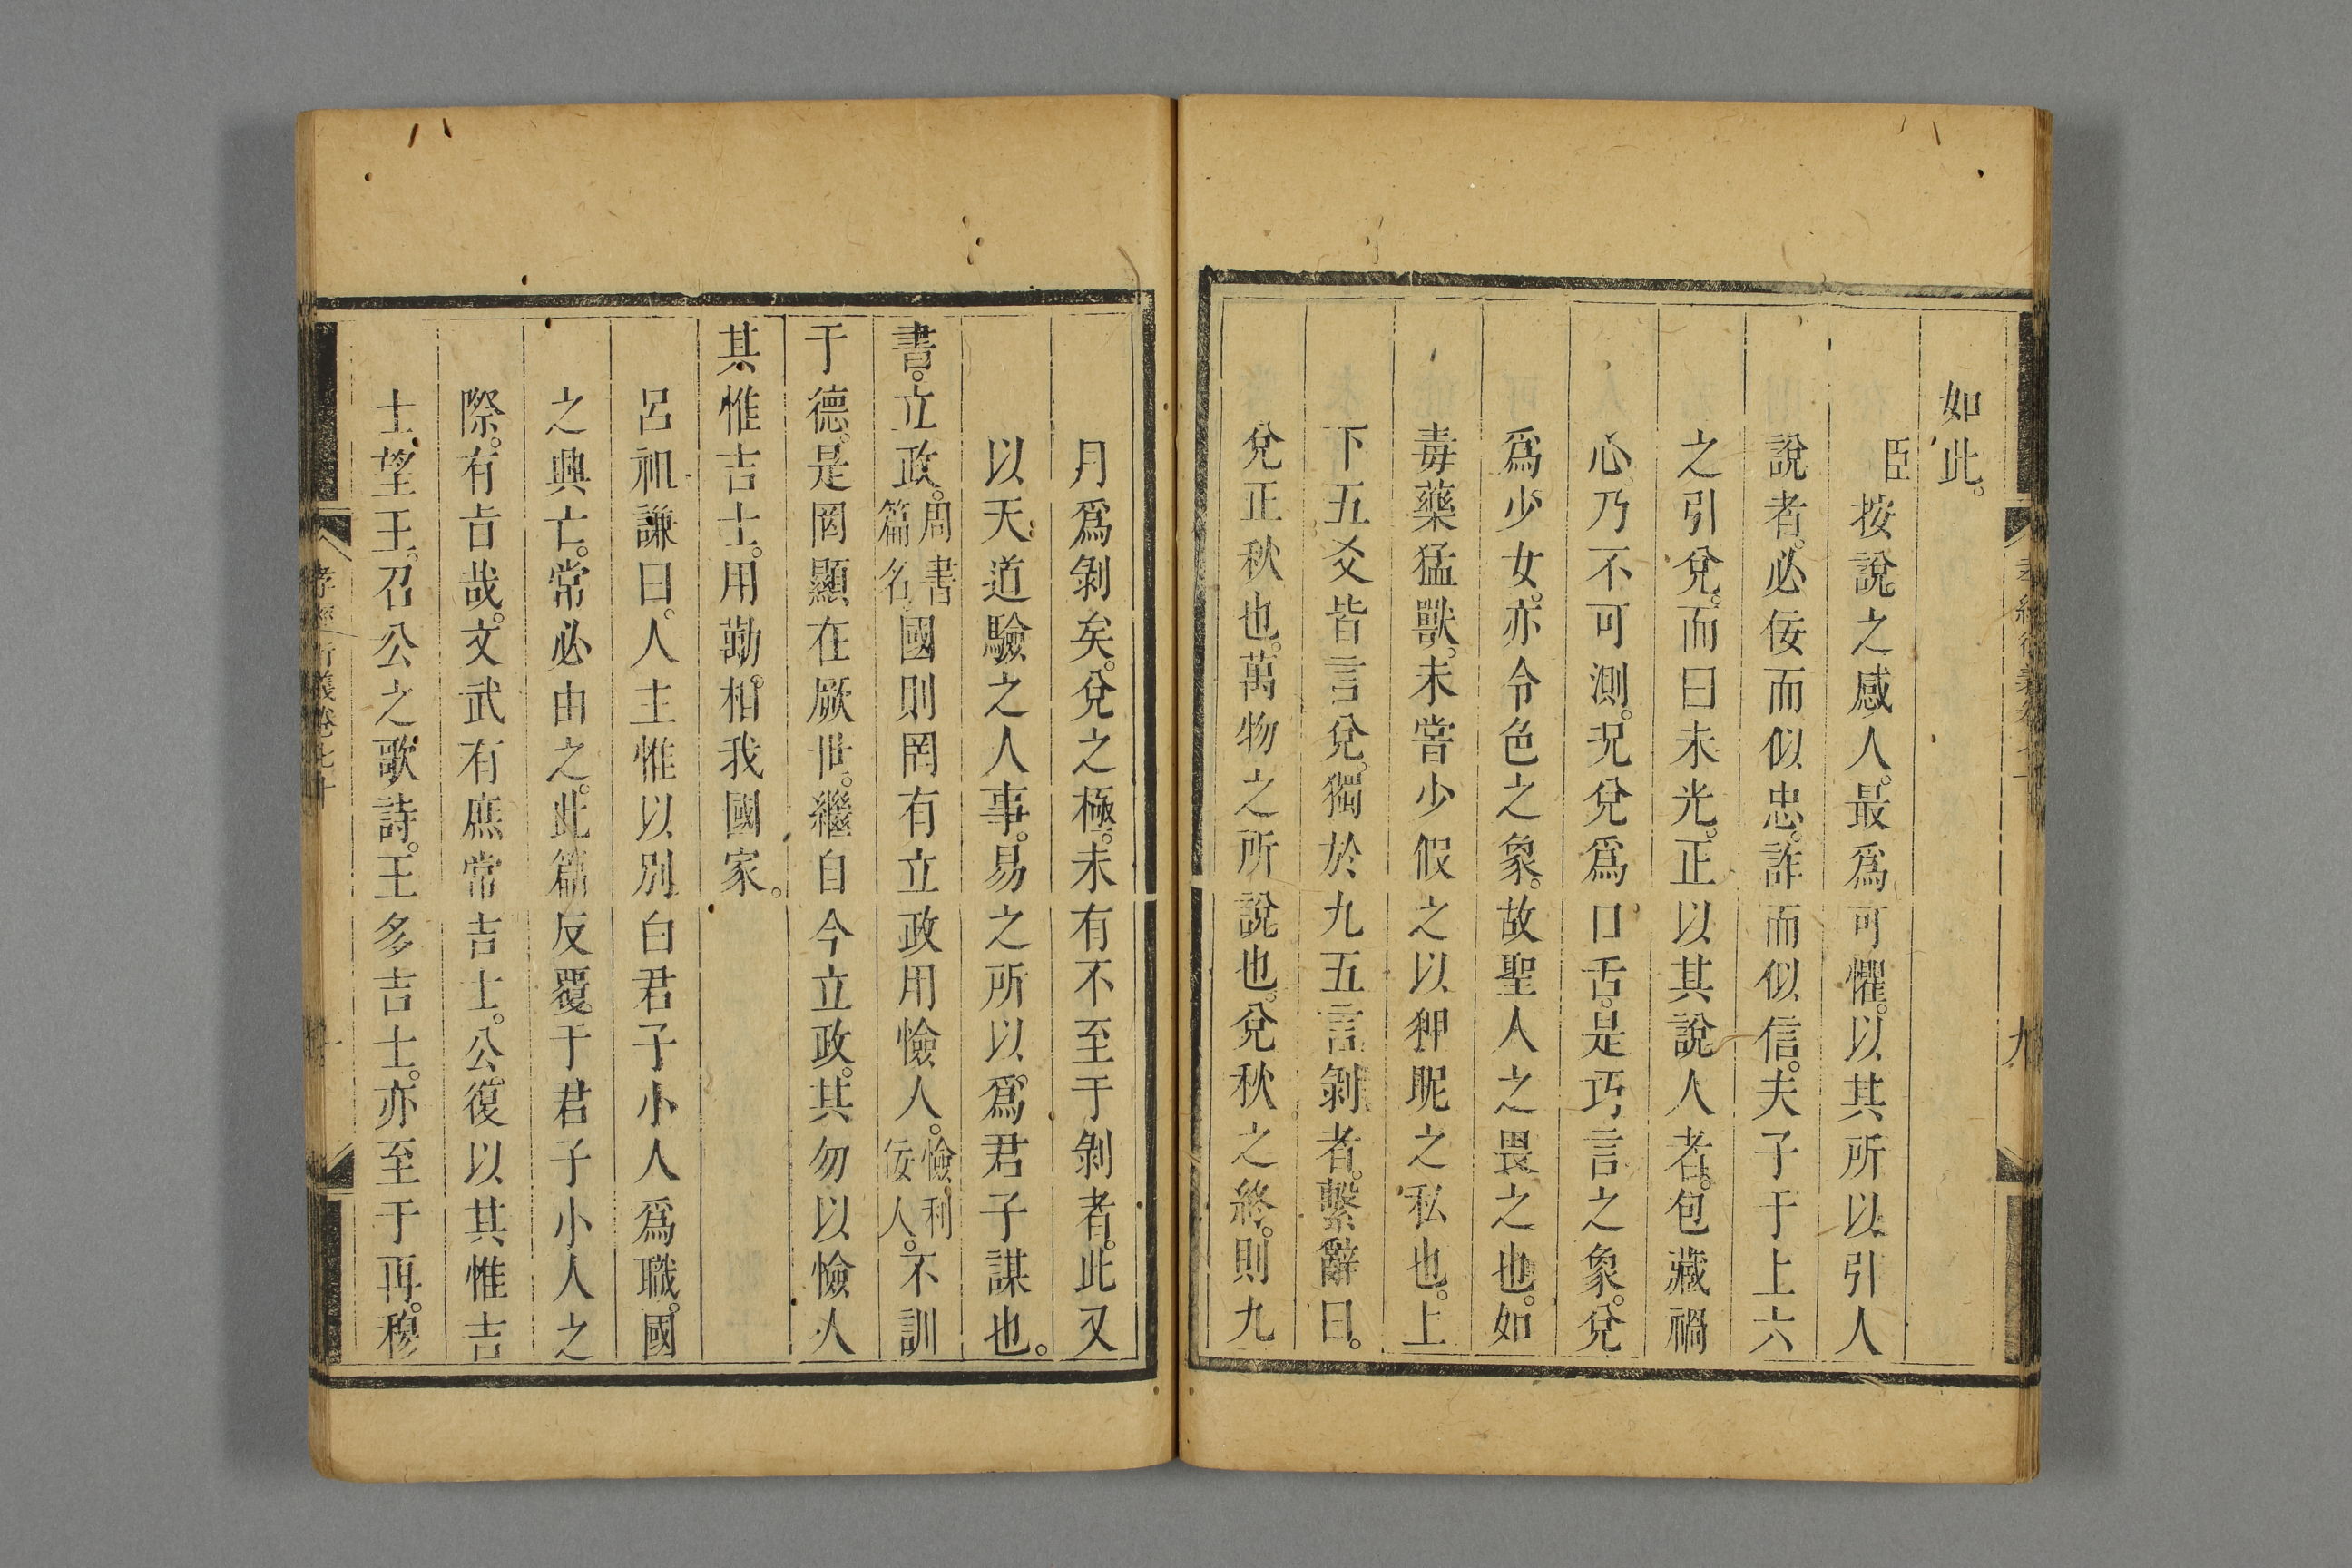 如此。
臣按說之感人。最爲可懼。以其所以引人
說者。必佞而似忠。詐而似信。夫子于上六
之引兌。而曰未光。正以其說人者。包藏禍
心。乃不可測。况兌爲口舌。是巧言之象。兌
爲少女。亦令色之象。故聖人之畏之也。如
毒藥猛獸。未嘗少假之以狎昵之私也。上
下五爻皆言兌。獨於九五言剝者。繫辭曰。
兌正秋也。萬物之所說也。兌秋之終。則九
月爲剝矣。兌之極。未有不至于剝者。此又
以天道驗之人事。易之所以爲君子謀也。
書。立政。周書篇名國則罔有立政用憸人。憸利佞人。不訓
于德。是罔顯在厥世。繼自今立政。其勿以憸人
其惟吉士。用勱相我國家。
呂祖謙曰。人主惟以別白君子小人爲職。國
之興亡。常必由之。此篇反覆。于君子小人之
際。有旨哉。文武有庶常吉士。公復以其惟吉
士望王。召公之歌詩。王多吉士。亦至于再。穆
孝經衍義卷七十